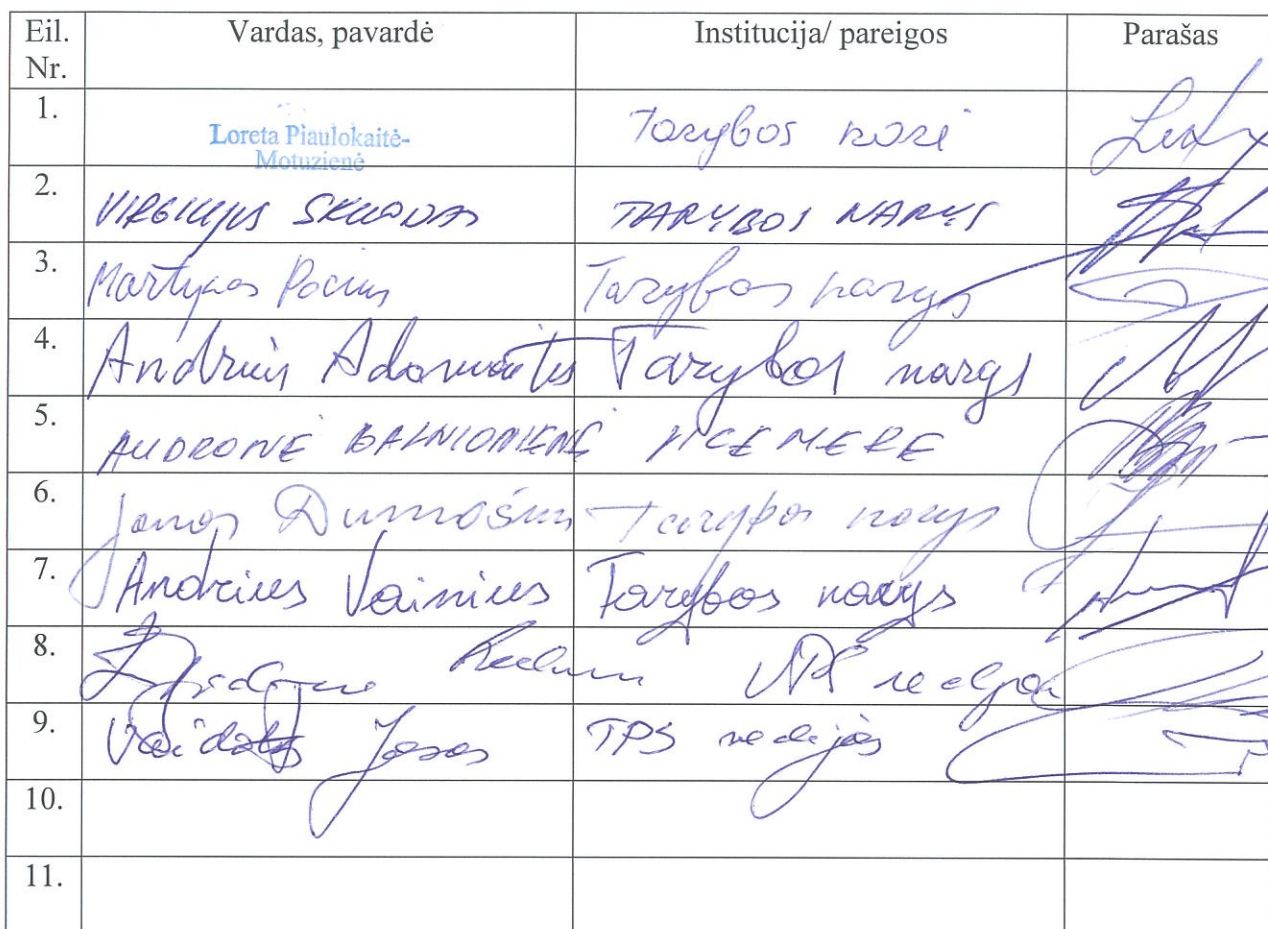 Eil. Nr. Vardas, pavardė Institucija/ pareigos Parašas
1. Loreta Piaulokaitė-Motuzienė Tarybos narė
2. VIRGINIJUS SKUODAS TARYBOS NARYS
3. Martynas Pocius Tarybos narys
4. Andrius Adomaitis Tarybos narys
5. AUDRONĖ BALNIONIENĖ VICEMERĖ
6. Jonas Dumašius Tarybos narys
7. Andrius Vainius Tarybos narys
8.
9. Vaidotas Jasas TPS vedėjas
10.
11.